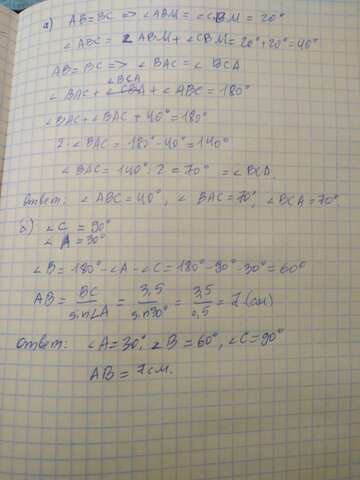 а) AB=BC => ∠ABM=∠CBM=20°
∠ABC= 2∠ABM+∠CBM=20°+20°=40°
AB=BC=> ∠BAC=∠BCA
∠BCA
∠BAC+∠CBA+∠ABC=180°
∠BAC+∠BAC+40°=180°
2·∠BAC=180°-40°=140°
∠BAC=140°:2=70° =∠BCA.
Ответ: ∠ABC=40°, ∠BAC=70°, ∠BCA=70°.
б) ∠C=90°
∠A=30°
∠B=180°-∠A-∠C=180°-90°-30°=60°
AB= BC/sin∠A = 3,5/sin30° = 3,5/0,5 = 7 (см)
Ответ: ∠A=30°, ∠B=60°, ∠C=90°
AB=7см.